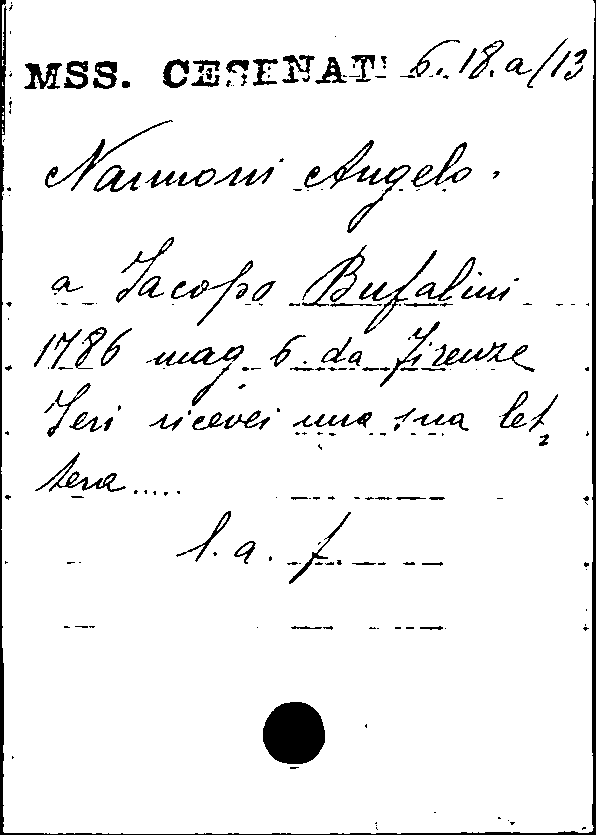 MSS. CESENATI 6.18.a/13
Nannoni Angelo.
a Jacopo Bufalini
1786 mag. 6. da Firenze
Jeri ricevei una sua let=
tera.....
l. a. f.